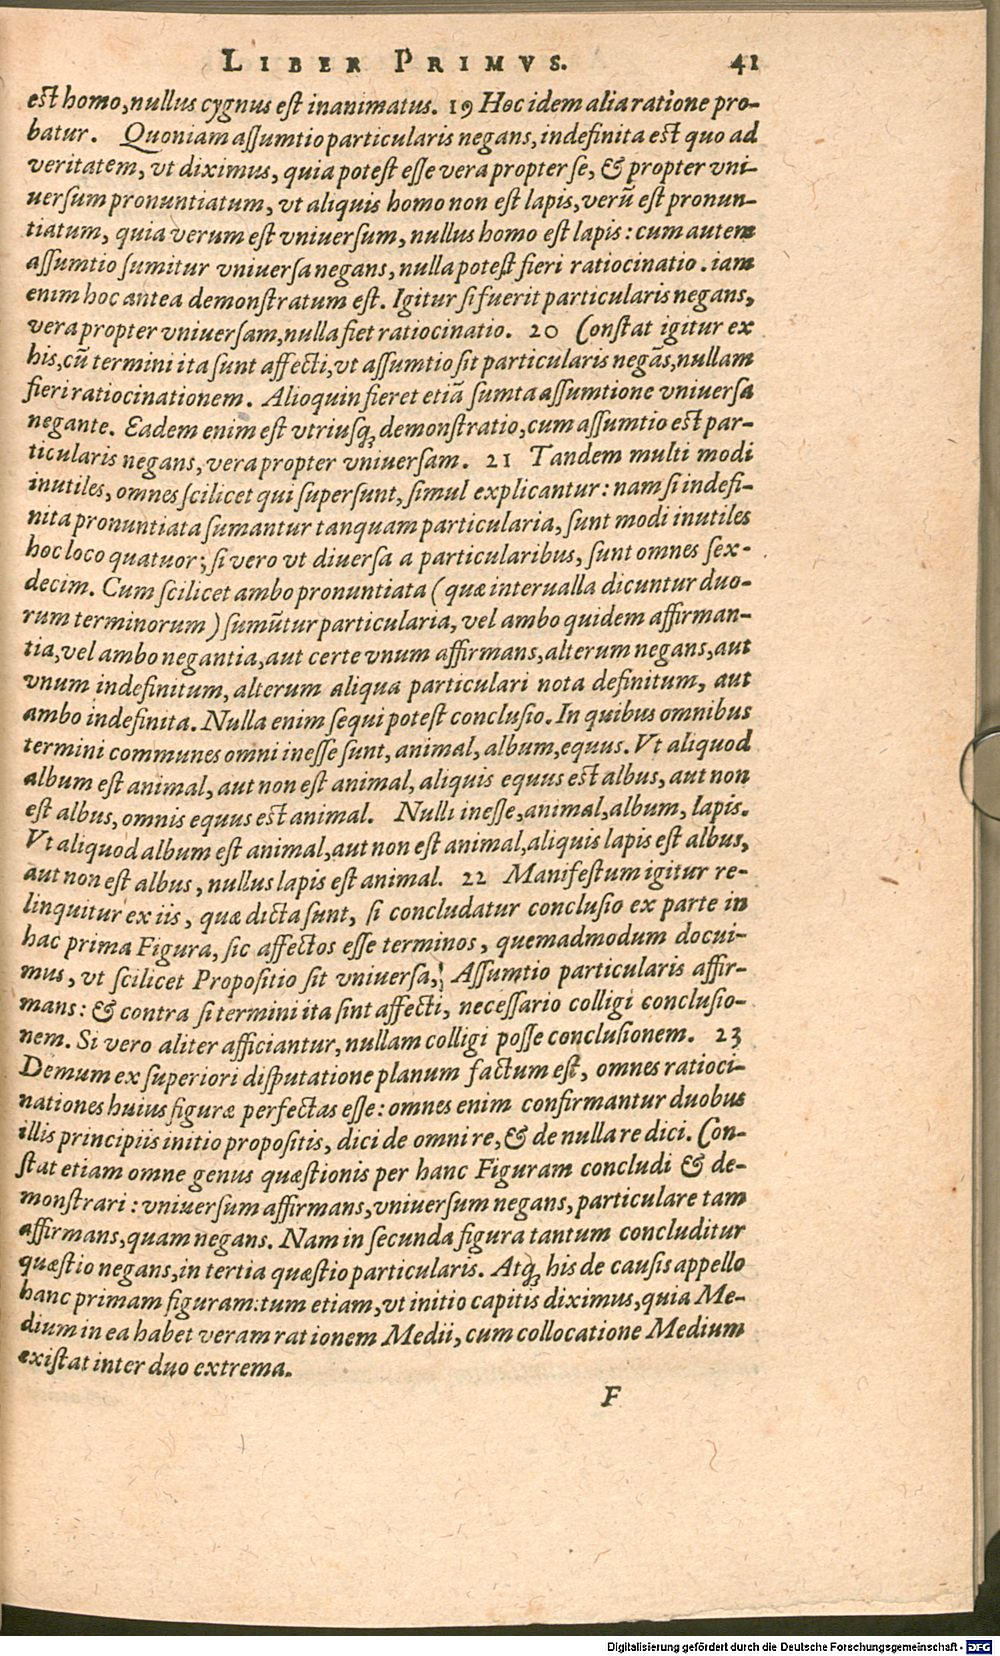 LIBER PRIMVS. 41
est homo, nullus cygnus est inanimatus. 19 Hoc idem alia ratione pro-
batur. Quoniam assumtio particularis negans, indefinita est quo ad
veritatem, vt diximus, quia potest esse vera propter se, & propter vni-
uersum pronuntiatum, vt aliquis homo non est lapis, verũ est pronun-
tiatum, quia verum est vniuersum, nullus homo est lapis: cum autem
assumtio sumitur vniuersa negans, nulla potest fieri ratiocinatio. iam
enim hoc antea demonstratum est. Igitur si fuerit particularis negans,
vera propter vniuersam, nulla fiet ratiocinatio. 20 Constat igitur ex
his, cũ termini ita sunt affecti, vt assumtio sit particularis negãs, nullam
fieri ratiocinationem. Alioquin fieret etiã sumta assumtione vniuersa
negante. Eadem enim est vtriusq; demonstratio, cum assumtio est par-
ticularis negans, vera propter vniuersam. 21 Tandem multi modi
inutiles, omnes scilicet qui supersunt, simul explicantur: nam si indefi-
nita pronuntiata sumantur tanquam particularia, sunt modi inutiles
hoc loco quatuor; si vero vt diuersa a particularibus, sunt omnes sex-
decim. Cum scilicet ambo pronuntiata (quæ interualla dicuntur duo-
rum terminorum) sumũtur particularia, vel ambo quidem affirman-
tia, vel ambo negantia, aut certe vnum affirmans, alterum negans, aut
vnum indefinitum, alterum aliqua particulari nota definitum, aut
ambo indefinita. Nulla enim sequi potest conclusio. In quibus omnibus
termini communes omni inesse sunt, animal, album, equus. Vt aliquod
album est animal, aut non est animal, aliquis equus est albus, aut non
est albus, omnis equus est animal. Nulli inesse, animal, album, lapis.
Vt aliquod album est animal, aut non est animal, aliquis lapis est albus,
aut non est albus, nullus lapis est animal. 22 Manifestum igitur re-
linquitur ex iis, quæ dicta sunt, si concludatur conclusio ex parte in
hac prima Figura, sic affectos esse terminos, quemadmodum docui-
mus, vt scilicet Propositio sit vniuersa, Assumtio particularis affir-
mans: & contra si termini ita sint affecti, necessario colligi conclusio-
nem. Si vero aliter afficiantur, nullam colligi posse conclusionem. 23
Demum ex superiori disputatione planum factum est, omnes ratioci-
nationes huius figuræ perfectas esse: omnes enim confirmantur duobus
illis principiis initio propositis, dici de omni re, & de nulla re dici. Con-
stat etiam omne genus quæstionis per hanc Figuram concludi & de-
monstrari: vniuersum affirmans, vniuersum negans, particulare tam
affirmans, quam negans. Nam in secunda figura tantum concluditur
quæstio negans, in tertia quæstio particularis. Atq; his de causis appello
hanc primam figuram: tum etiam, vt initio capitis diximus, quia Me-
dium in ea habet veram rationem Medii, cum collocatione Medium
existat inter duo extrema.
F
Digitalisierung gefördert durch die Deutsche Forschungsgemeinschaft - DFG